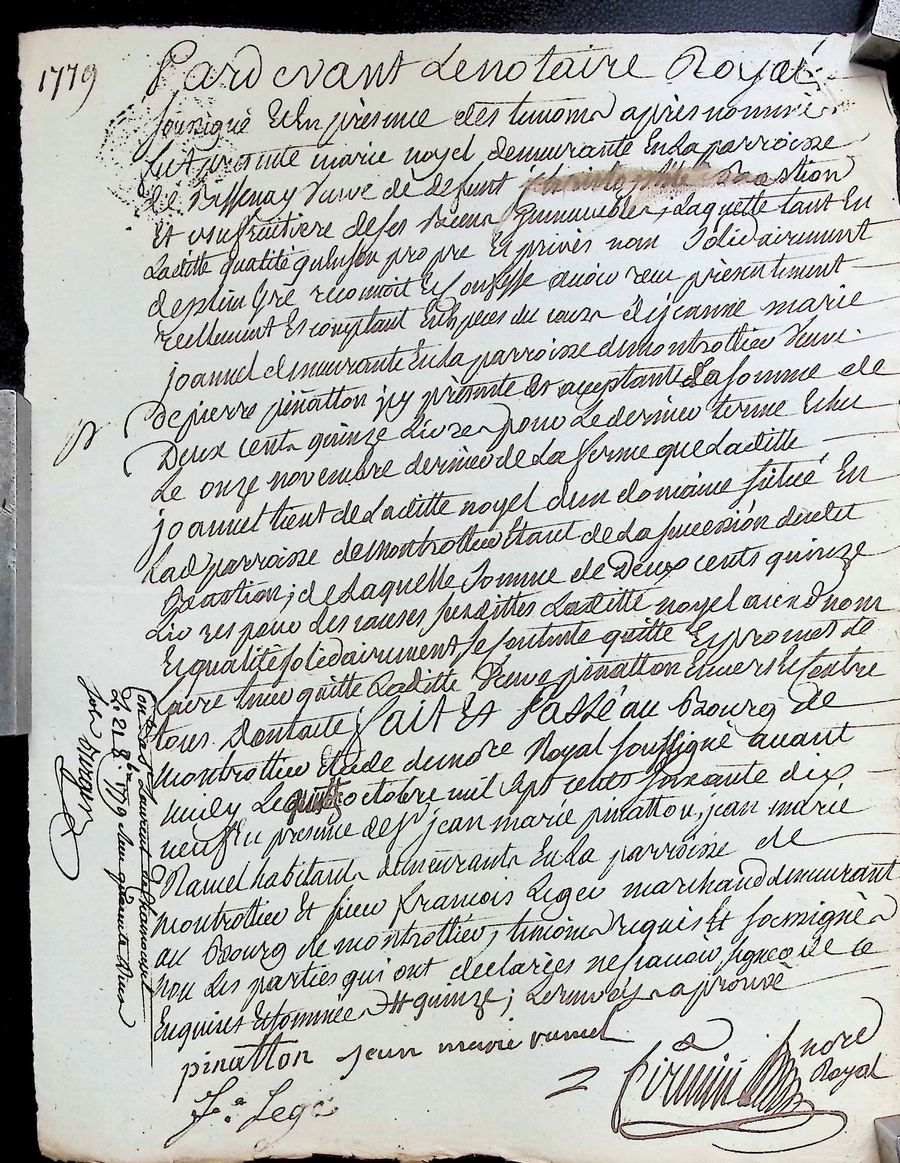 1779
Pardevant Le notaire Royal
soussigné Et En présence des temoins après nommés
fut presente marie noyel demeurante En La parroisse
de Bessenay veuve de defunt Brastion
Et usufruitiere de ses Biens Immeubles, Laquelle tant En
Laditte qualité qu'en son propre Et privés nom solidairement
de plein gré reconnoit Et Confesse avoir reçu présentement
reellement Et comptant En Especes du cours de jeanne marie
joannel demeurante En La parroisse de montrottier veuve
de pierre pinatton jcy présente Et acceptante La somme de
Deux cents quinze Livres pour Le dernier terme Echu
Le onze novembre dernier de La ferme que Laditte
joannel tient de Laditte noyel d'un domaine situé En
Lad parroisse de montrottier Etant de La succession dudit
Brastion, de Laquelle somme de Deux cents quinze
Livres pour Les causes susdittes Laditte noyel auxd noms
Et qualité solidairement se contente quitte Et promet de
faire tenir quitte Laditte Veuve pinatton Envers Et Contre
tous. Dont acte, fait Et Passé au Bourg de
montrottier Etude du no.re Royal soussigné avant
midy Le octobre mil sept cents soixante dix
neuf En presence de s.r jean marie pinatton, jean marie
Ramel habitants demeurants En La parroisse de
montrottier Et sieur francois Leger marchand demeurant
au Bourg de montrottier, temoins requis Et soussignés
non Les parties qui ont declarées ne scavoir signer de ce
Enquises Et sommées # quinze; Le renvoy approuvé
pinatton jean marie ramel
f.s Leger
no.re
Royal
Con.lé a St Laurent de Chamousset
Le 21 8.bre 1779